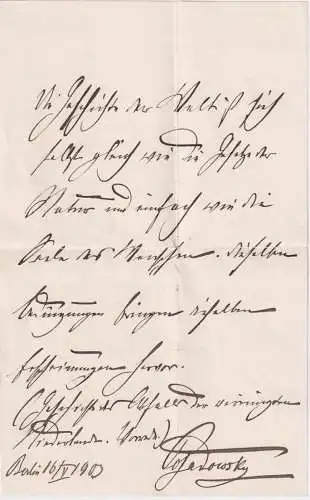 Die Geschichte der Welt ist sich
selbst gleich wie die Gesetze der
Natur und einfach wie die
Seele des Menschen. Dieselben
Bedingungen bringen dieselben
Erscheinungen hervor.
(Geschichte des Abfalls der vereinigten
Niederlande. Vorrede)
Berlin 16/V 1903 Posadowsky